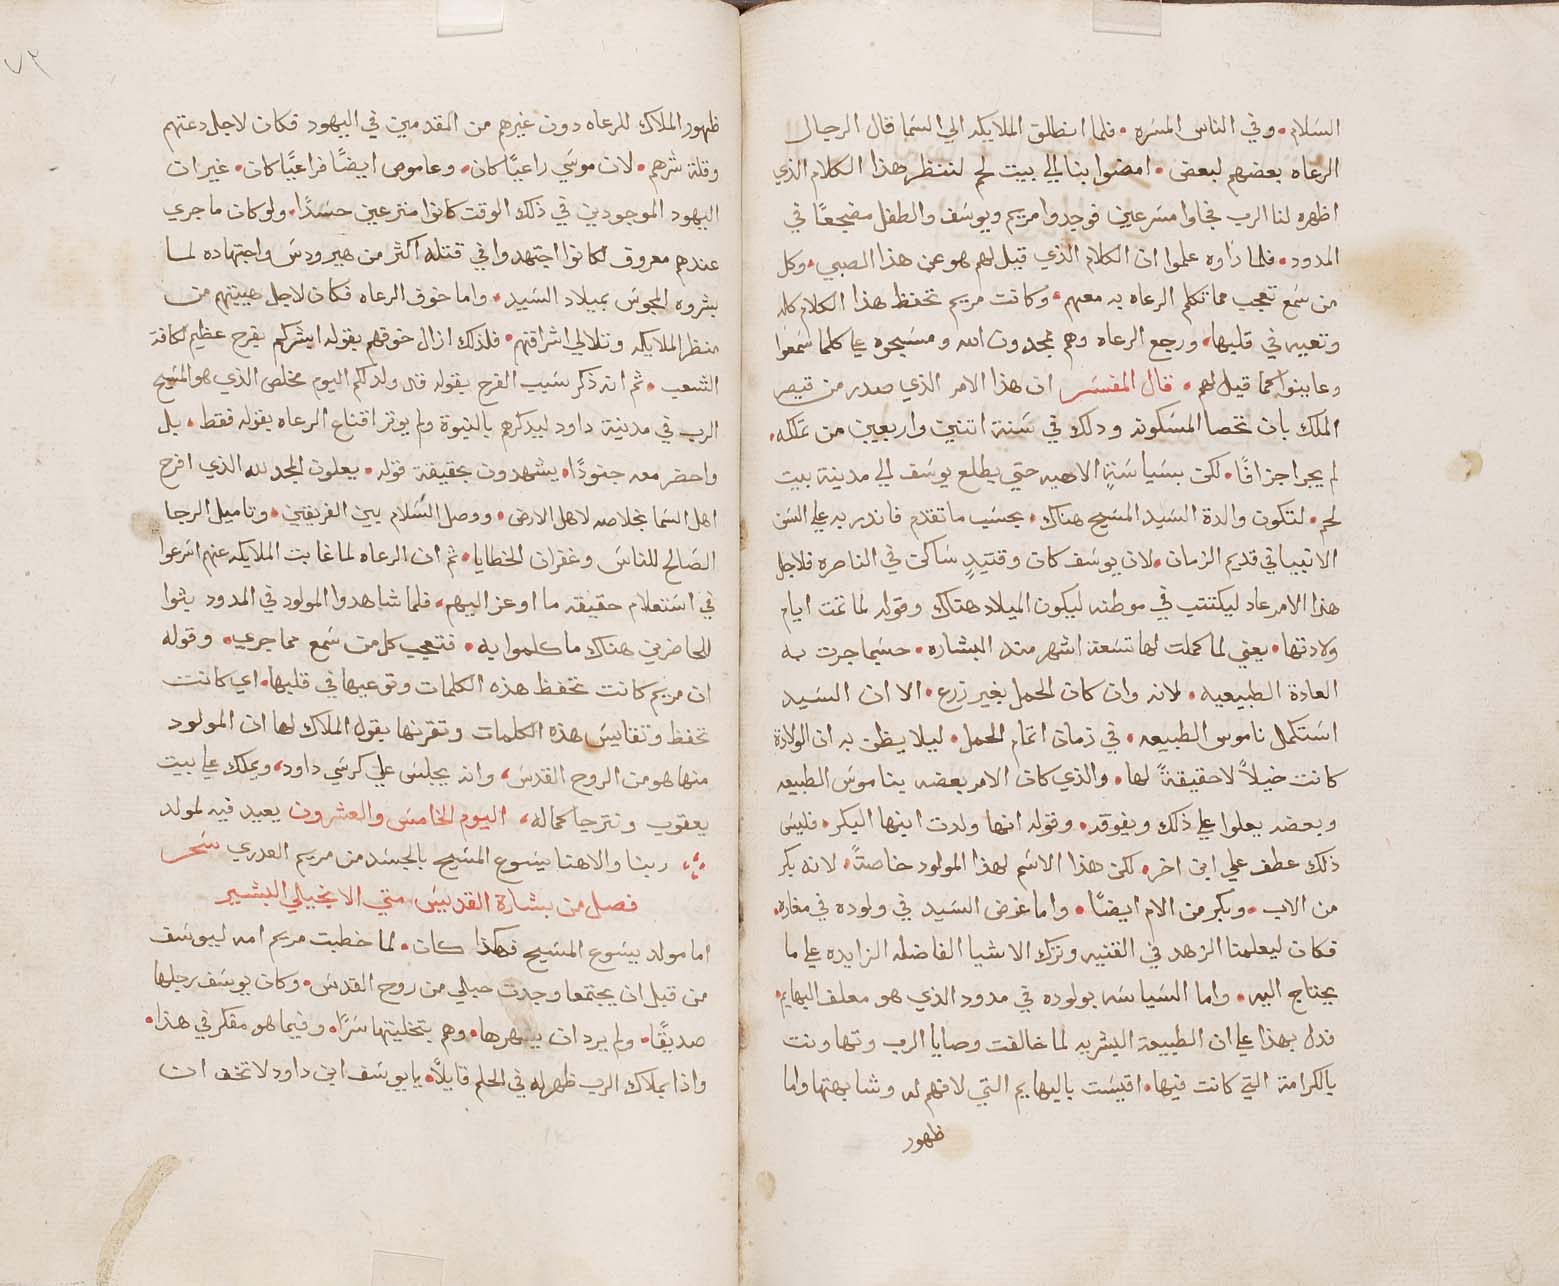 السلام وفي الناس المسره فلما انطلق الملايكه الي السما قال الرجال
الرعاه بعضهم لبعض امضوا بنا الي بيت لحم لننظر هذا الكلام الذي
اظهره لنا الرب فجاوا مسرعين فوجدوا مريم ويوسف والطفل مضجعًا في
المدود فلما راوه علموا ان الكلام الذي قيل لهم هو عن هذا الصبي وكل
من سمع تعجب مما تكلم الرعاه به معهم وكانت مريم تحفظ هذا الكلام كله
وتعيه في قلبها ورجع الرعاه وهم يمجدون الله ومسبحوه علي كلما سمعوا
وعاينوا كما قيل لهم قال المفسر ان هذا الامر الذي صدر من قيصر
الملك بان تحصا المسكونه ودلك في سنة اتنين واربعين من تملكه
لم يجرا جزافًا لكن بسياسة الاهيه حتي يطلع يوسف الي مدينة بيت
لحم لتكون والدة السيد المسيح هناك بحسب ما تقدم فاندر به علي السن
الانبيا في قديم الزمان لان يوسف كان وقتيدٍ ساكن في الناصره فلاجل
هذا الامر عاد ليكتتب في موطنه ليكون الميلاد هناك وقوله لما تمت ايام
ولادتها يعني لما كملت لها تسعة اشهر مند البشاره حسبما جرت به
العادة الطبيعيه لانه وان كان الحمل بغير زرع الا ان السيد
استكمل ناموس الطبيعه في زمان اتمام الحمل ليلا يظن به ان الولادة
كانت خيلاً لا حقيقةً لها والذي كان الامر بعضه بناموس الطبيعه
وبعضه يعلوا علي ذلك ويفوقه وقوله انها ولدت ابنها البكر فليس
ذلك عطف علي ابن اخر لكن هذا الاسم لهذا المولود خاصةً لانه بكر
من الاب وبكر من الام ايضًا واما غرض السيد في ولوده في مغاره
فكان ليعلمنا الزهد في القنيه وترك الاشيا الفاضله الزايده علي ما
يحتاج اليه واما السياسه بولوده في مدود الذي هو معلف البهايم
فدل بهذا علي ان الطبيعة البشريه لما خالفت وصايا الرب وتهاونت
بالكرامة التي كانت فيها اقيست بالبهايم التي لا فهم له وشابهتها واما
ظهور
٧٢
ظهور الملاك للرعاه دون غيرهم من المقدمين في اليهود فكان لاجل دعتهم
وقلة شرهم لان موسي راعيًا كان وعاموص ايضًا فراعيًا كان غير ان
اليهود الموجودين في ذلك الوقت كانوا منزعين حسدًا ولو كان ما جري
عندهم معروف لكانوا اجتهدوا في قتله اكثر من هيرودس واجتهاده لما
بشروه المجوس بميلاد السيد واما خوف الرعاه فكان لاجل هيبتهم من
منظر الملايكه وتلالي اشراقهم فلذلك ازال خوفهم بقوله ابشركم بفرح عظيم لكافة
الشعب ثم انه ذكر سبب الفرح بقوله قد ولد لكم اليوم مخلص الذي هو المسيح
الرب في مدينة داود ليدكرهم بالنبوة ولم يوثر اقناع الرعاه بقوله فقط بل
واحضر معه جنودًا يشهدون بحقيقة قوله يعلون المجد لله الذي افرح
اهل السما بخلاصه لاهل الارض ووصل السلام بين الفريقين وتاميل الرجا
الصالح للناس وغفران الخطايا ثم ان الرعاه لما غابت الملايكه عنهم اسرعوا
في استعلام حقيقه ما اوعز اليهم فلما شاهدوا المولود في المدود بثوا
للحاضرين هناك ما كلموا به فتعجب كل من سمع مما جري وقوله
ان مريم كانت تحفظ هذه الكلمات وتوعيها في قلبها اي كانت
تحفظ وتقايس هذه الكلمات وتقرنها بقول الملاك لها ان المولود
منها هو من الروح القدس وانه يجلس علي كرسي داود ويملك علي بيت
يعقوب ونترجا كماله اليوم الخامس والعشرون يعيد فيه لمولد
ربنا والاهنا يسوع المسيح بالجسد من مريم العدري سحر
فصل من بشارة القديس متي الانجيلي البشير
اما مولد يسوع المسيح فهكذا كان لما خطبت مريم امه ليوسف
من قبل ان يجتمعا وجدت حبلي من روح القدس وكان يوسف رجلها
صديقًا ولم يرد ان يشهرها وهم بتخليتها سرًا وفيما هو مفكر في هذا
واذا بملاك الرب ظهر له في الحلم قايلاً يا يوسف ابن داود لا تخف ان